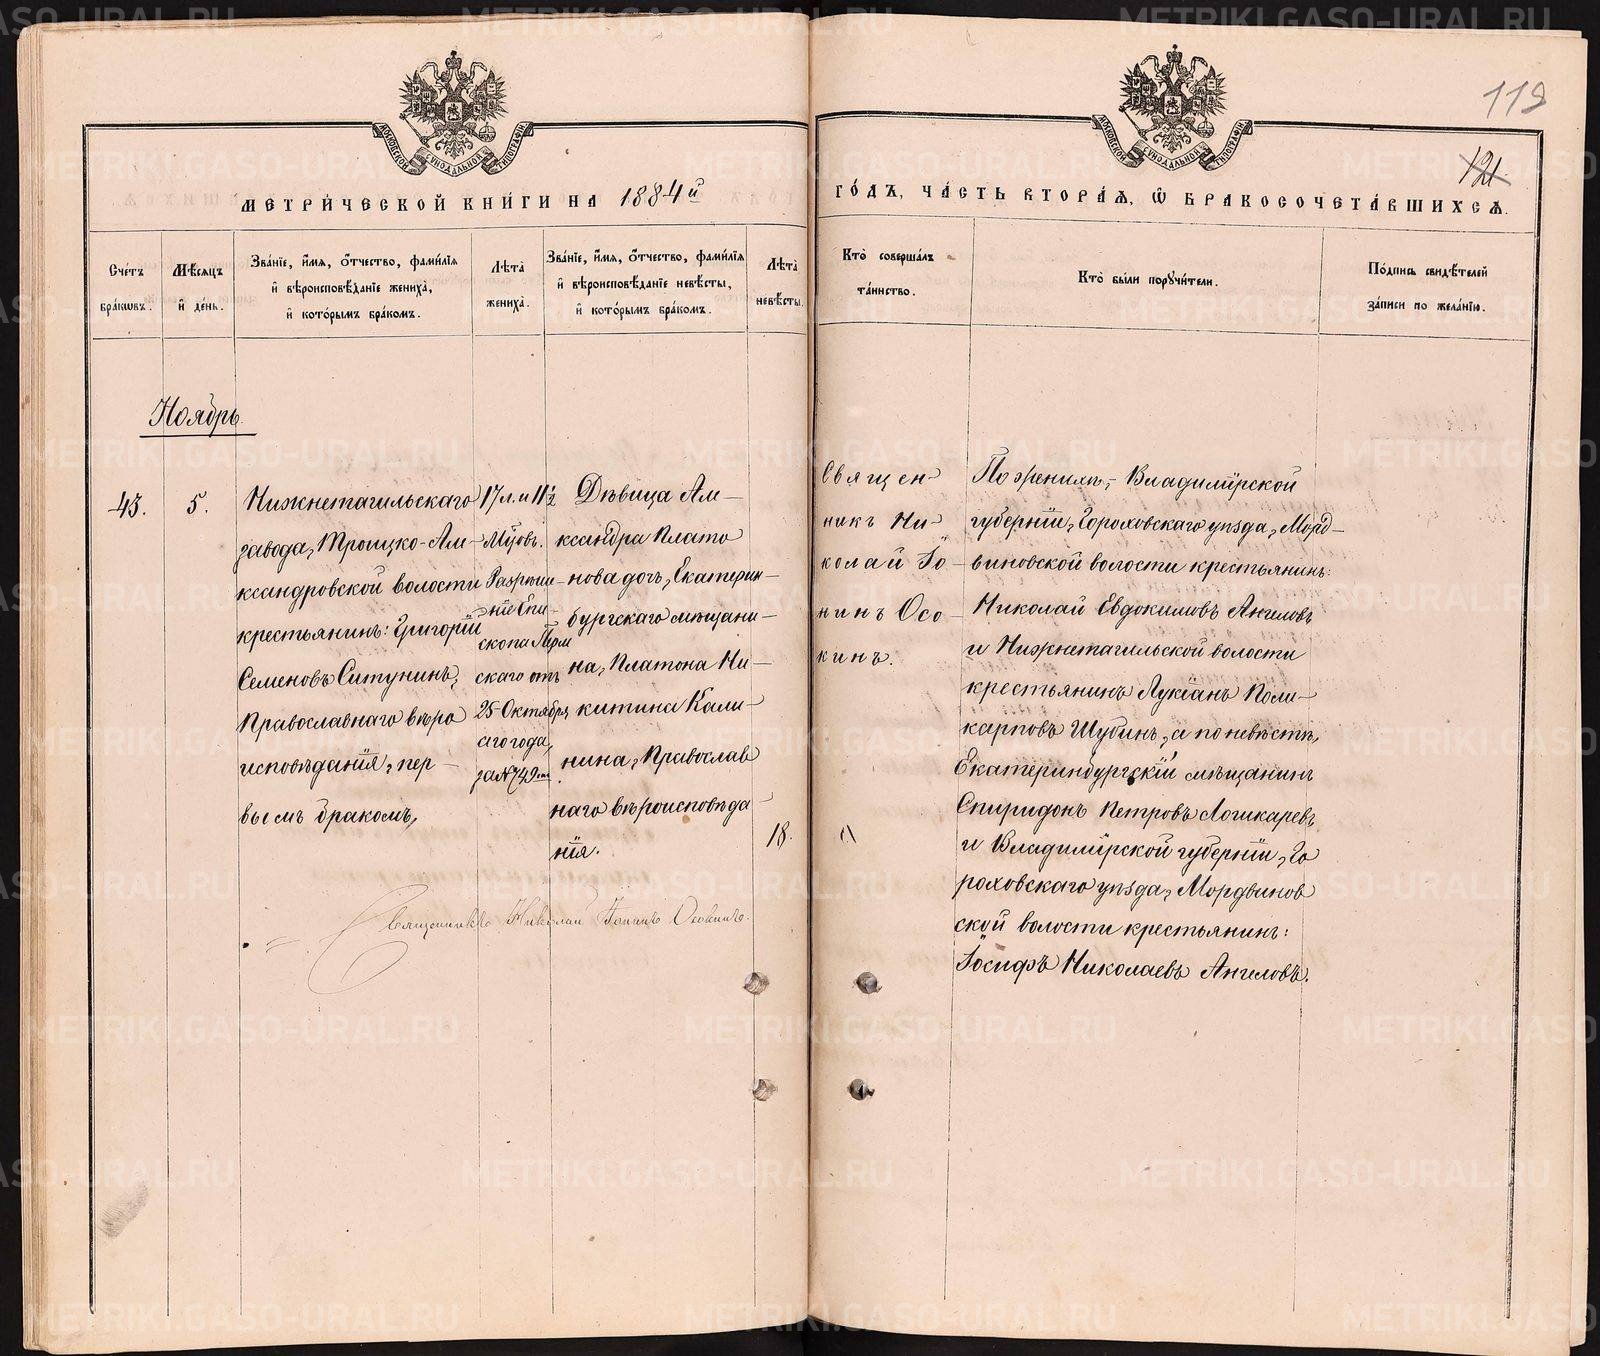 119
121
МЕТРИЧЕСКОЙ КНИГИ НА 1884й
ГОДЪ, ЧАСТЬ ВТОРАЯ, Ѿ БРАКОСОЧЕТАВШИХСЯ.
Счетъ браковъ.
Мѣсяцъ и день.
Званіе, имя, отчество, фамилія и вѣроисповѣданіе жениха, и которымъ бракомъ.
Лѣта жениха.
Званіе, имя, отчество, фамилія и вѣроисповѣданіе невѣсты, и которымъ бракомъ.
Лѣта невѣсты.
Кто совершалъ таинство.
Кто были поручители.
Подпись свидѣтелей записи по желанію.
Ноябрь
43.
5.
Нижнетагильскаго
завода, Троицко-Але-
ксандровской волости
крестьянинъ: Григорій
Семеновъ Ситунинъ,
Православнаго вѣро
исповѣданія, пер-
вымъ бракомъ,
17 л. и 11½
Мѣсяцовъ.
Разрѣше-
ніе Епи-
скопа Перм
скаго отъ
25 Октября
сего года,
за № 749
Дѣвица Але-
ксандра Плато
нова дочь, Екатерин-
бургскаго мѣщани-
на, Платона Ни-
китина Кали-
нина, Православ
наго вѣроисповѣда-
нія.
18.
Священникъ Николай Іонинъ Осокинъ.
Священ-
никъ Ни-
колай Іо-
нинъ Осо-
кинъ.
По женихѣ, Владимірской
губерніи, Гороховскаго уѣзда, Морд-
виновской волости крестьянинъ:
Николай Евдокимовъ Ангеловъ
и Нижнетагильской волости
крестьянинъ Лукіанъ Поли-
карповъ Шубинъ, а по невѣстѣ,
Екатеринбургскій мѣщанинъ
Спиридонъ Петровъ Лошкаревъ
и Владимірской губерніи, Го
роховскаго уѣзда, Мордвинов
ской волости крестьянинъ:
Іосифъ Николаевъ Ангеловъ.
METRIKI.GASO-URAL.RU